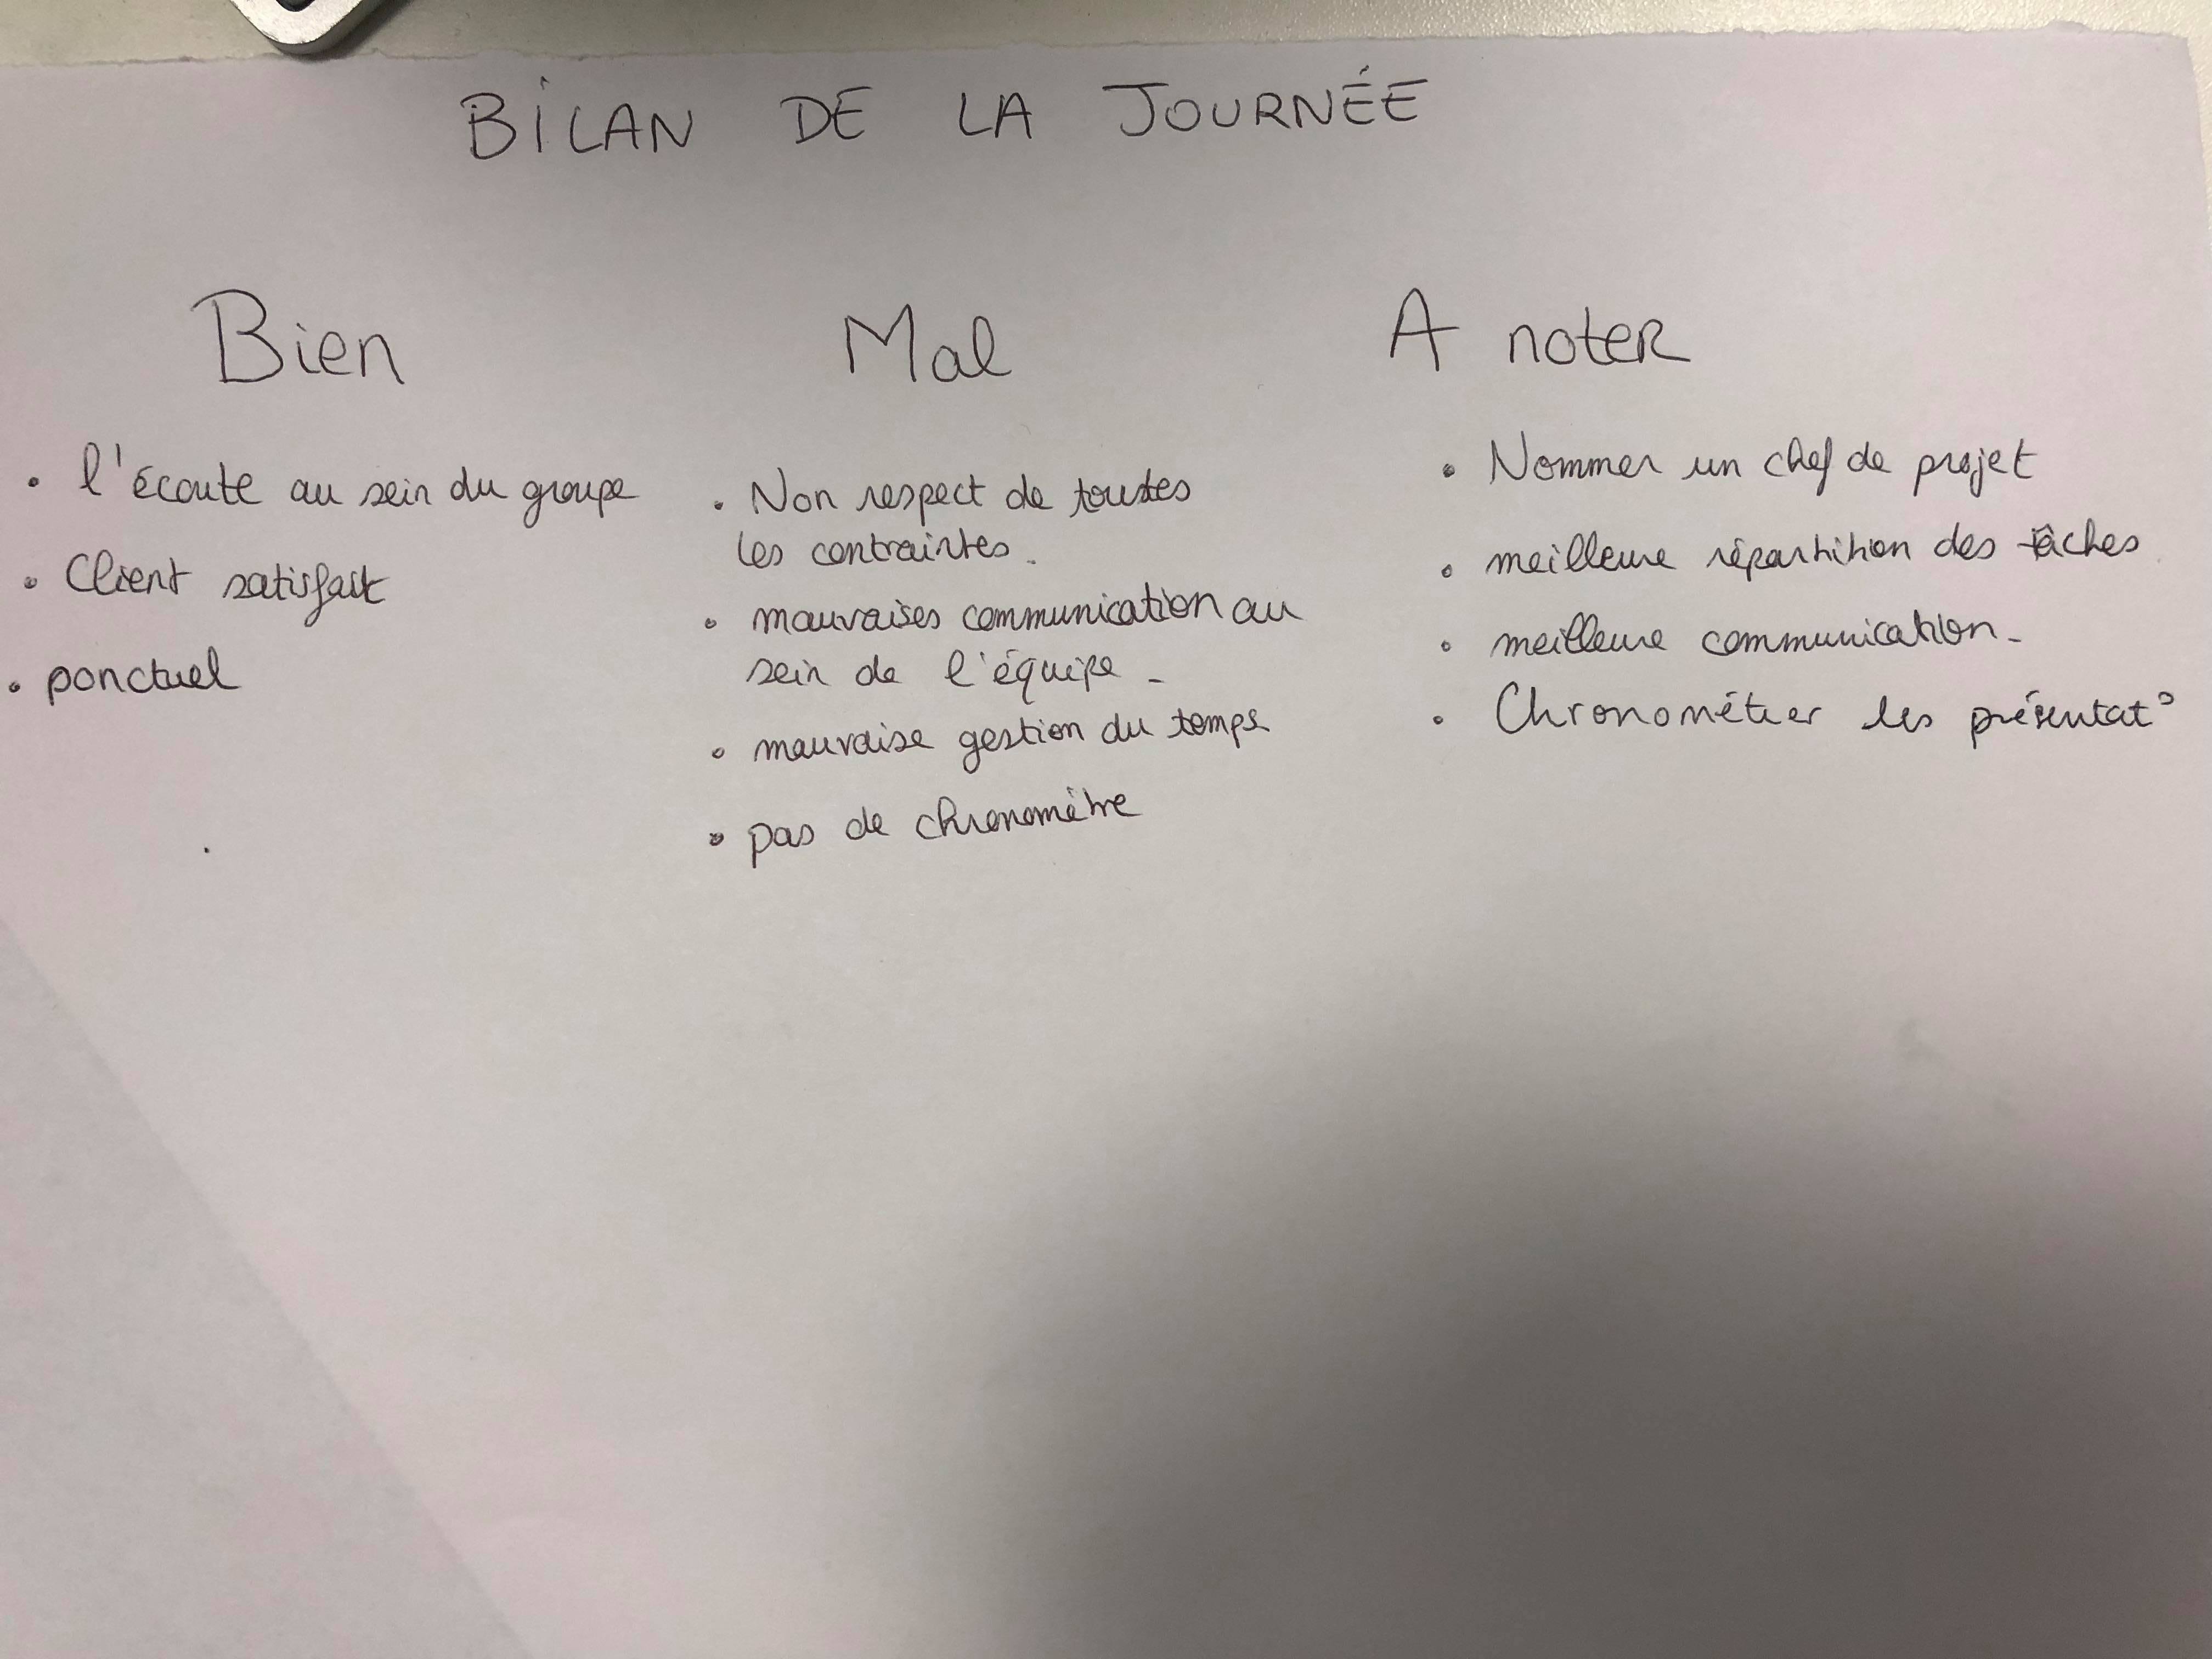 BILAN DE LA JOURNÉE
Bien
• l'écoute au sein du groupe
• Client satisfait
• ponctuel
Mal
• Non respect de toutes
les contraintes.
• mauvaises communication au
sein de l'équipe -
• mauvaise gestion du temps
• pas de chronomètre
A noter
• Nommer un chef de projet
• meilleure répartition des tâches
• meilleure communication -
• Chronométrer les présentat°